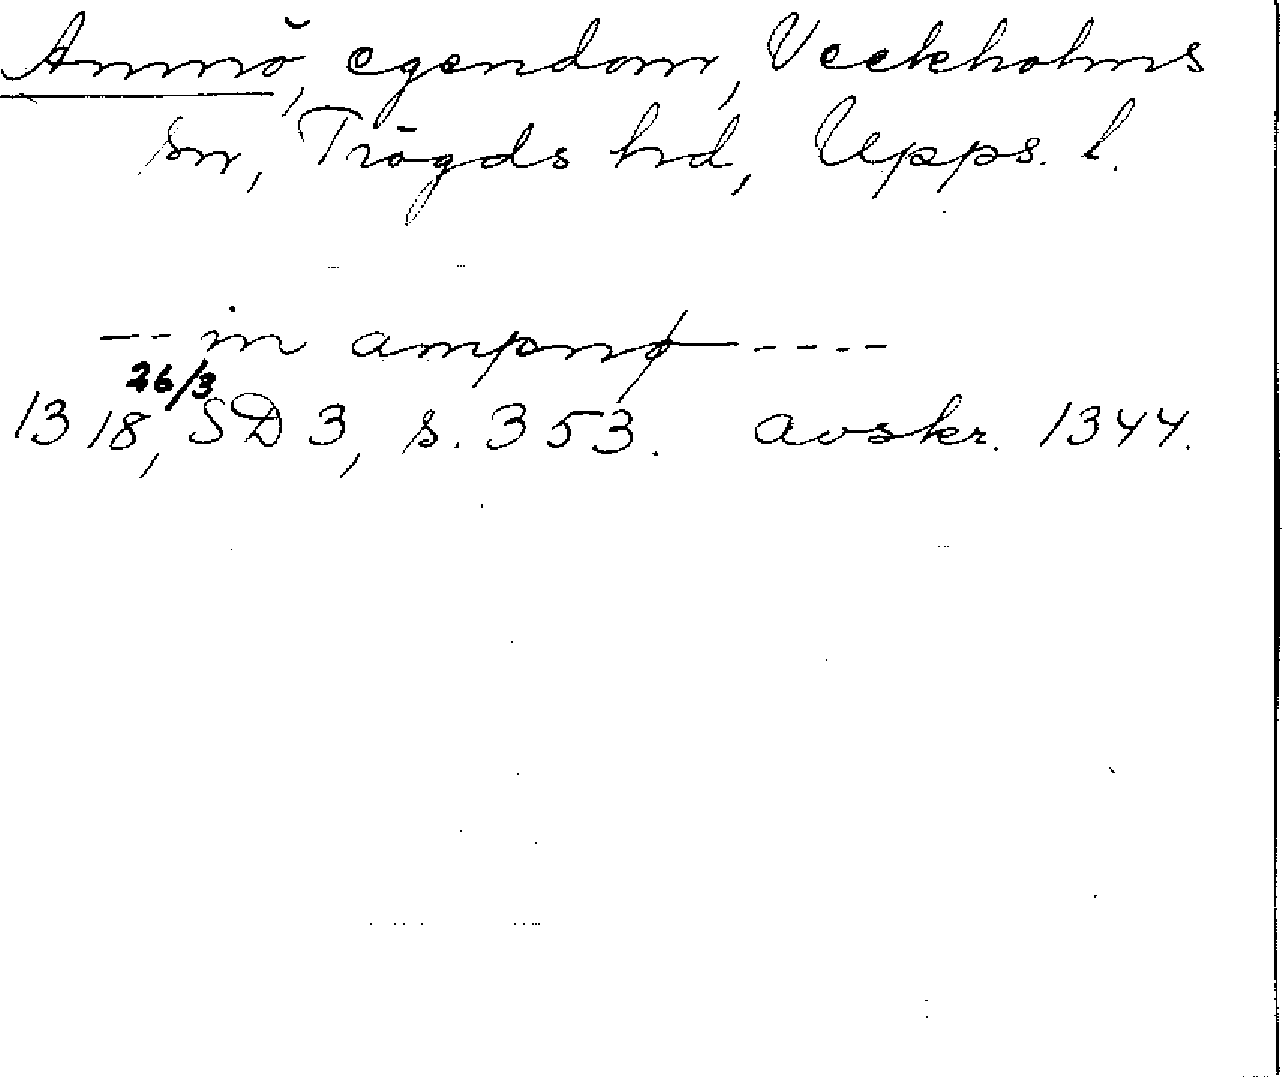 Ammö, egendom, Veckholms
sn, Trögds hd, Upps. l.
--- in ampnø ----
26/3
1318, SD 3, s. 353. avskr. 1344.